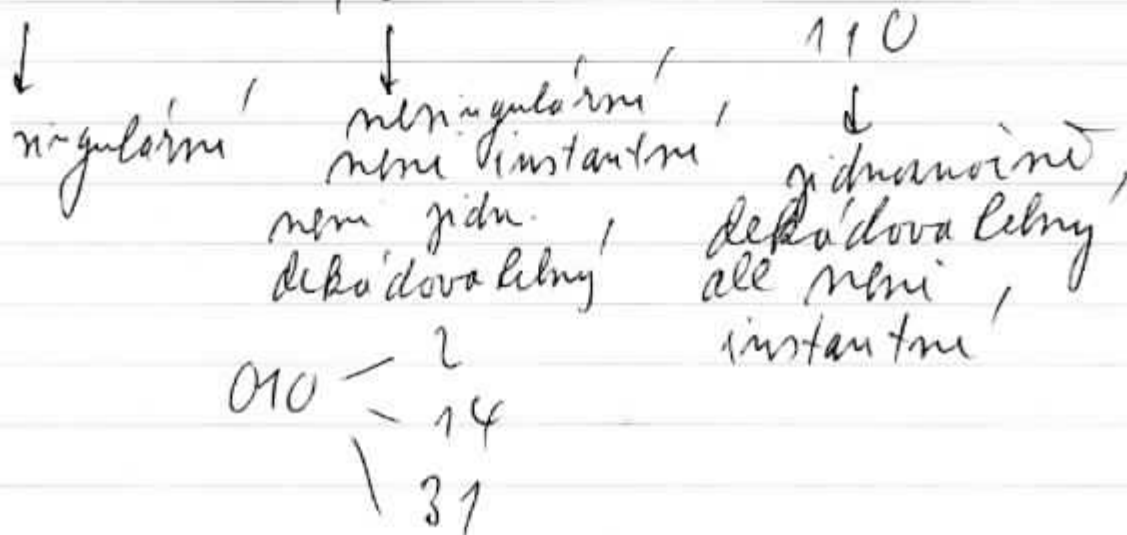 110
↓ ↓ ↓
singulární
nesingulární
není instantní
není jedn.
dekódovatelný
jednoznačně
dekódovatelný
ale není
instantní
010
2
14
31